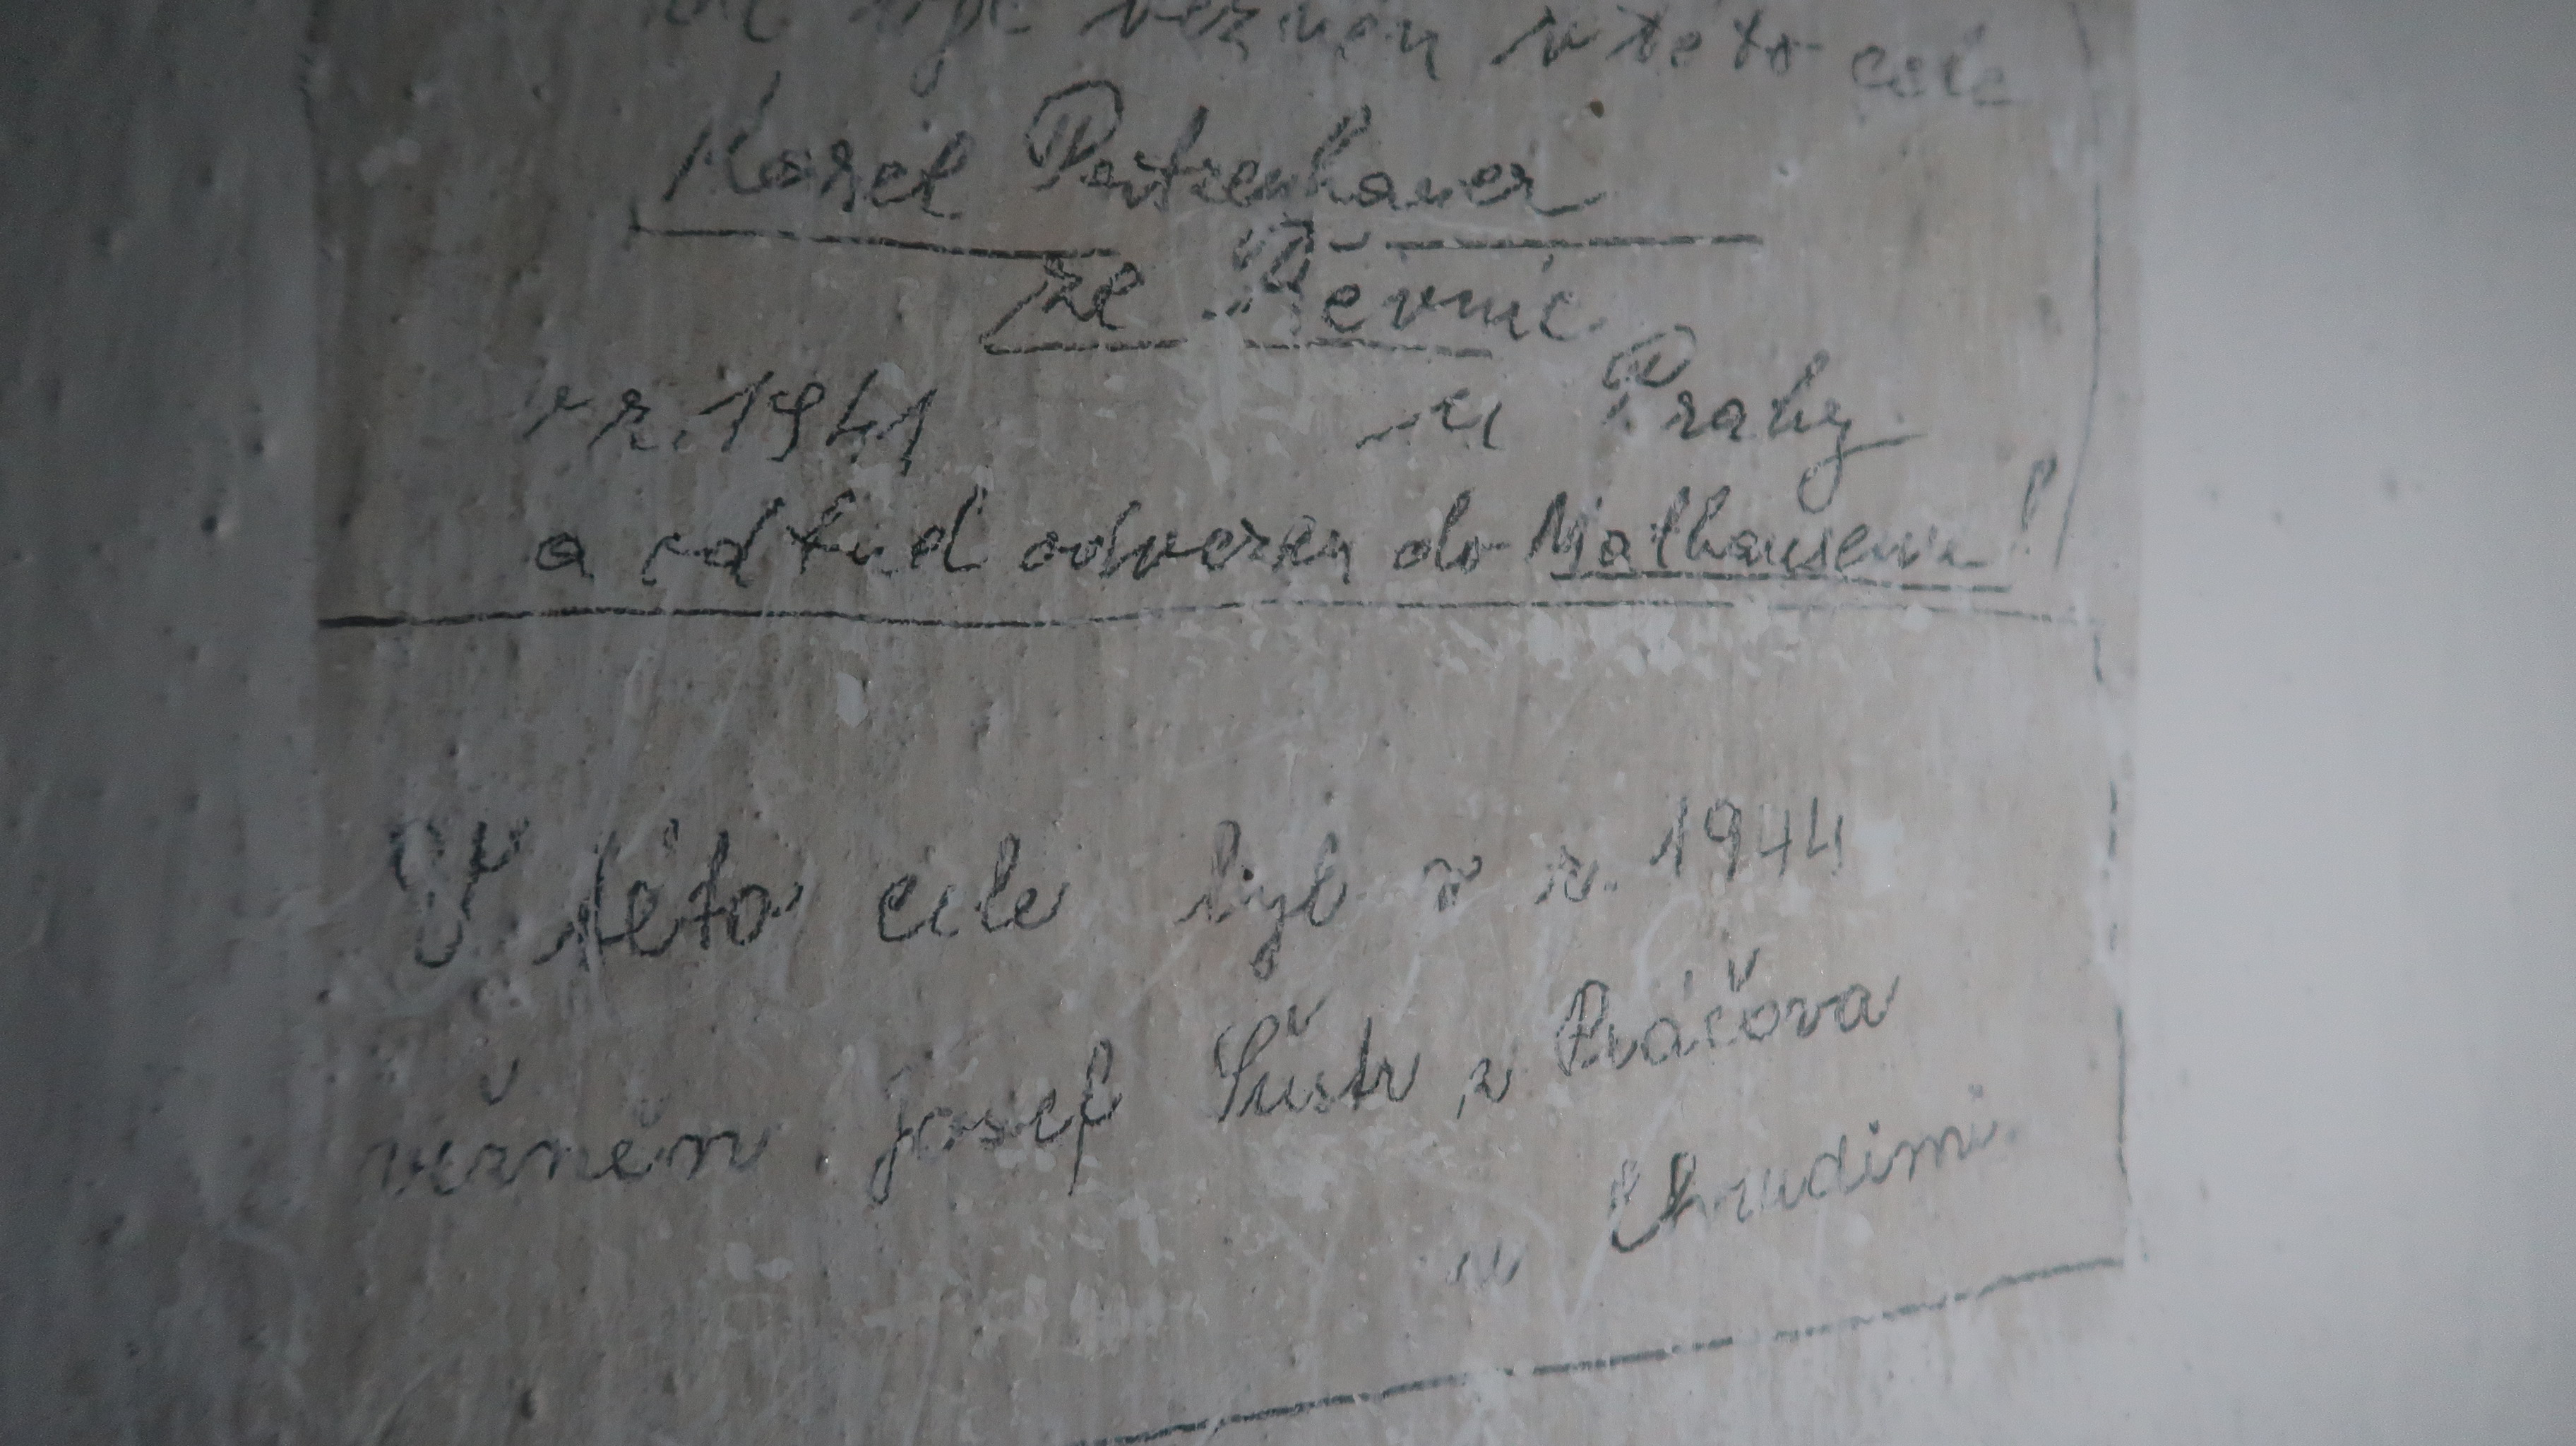 byl vězněn v této cele
Karel Patzenhauer
ze Řevnic
v r. 1941 u Prahy
a odtud odvezen do Mathausenu!
V této cele byl v r. 1944
vězněn Josef Šustr z Práčova
u Chrudimi.